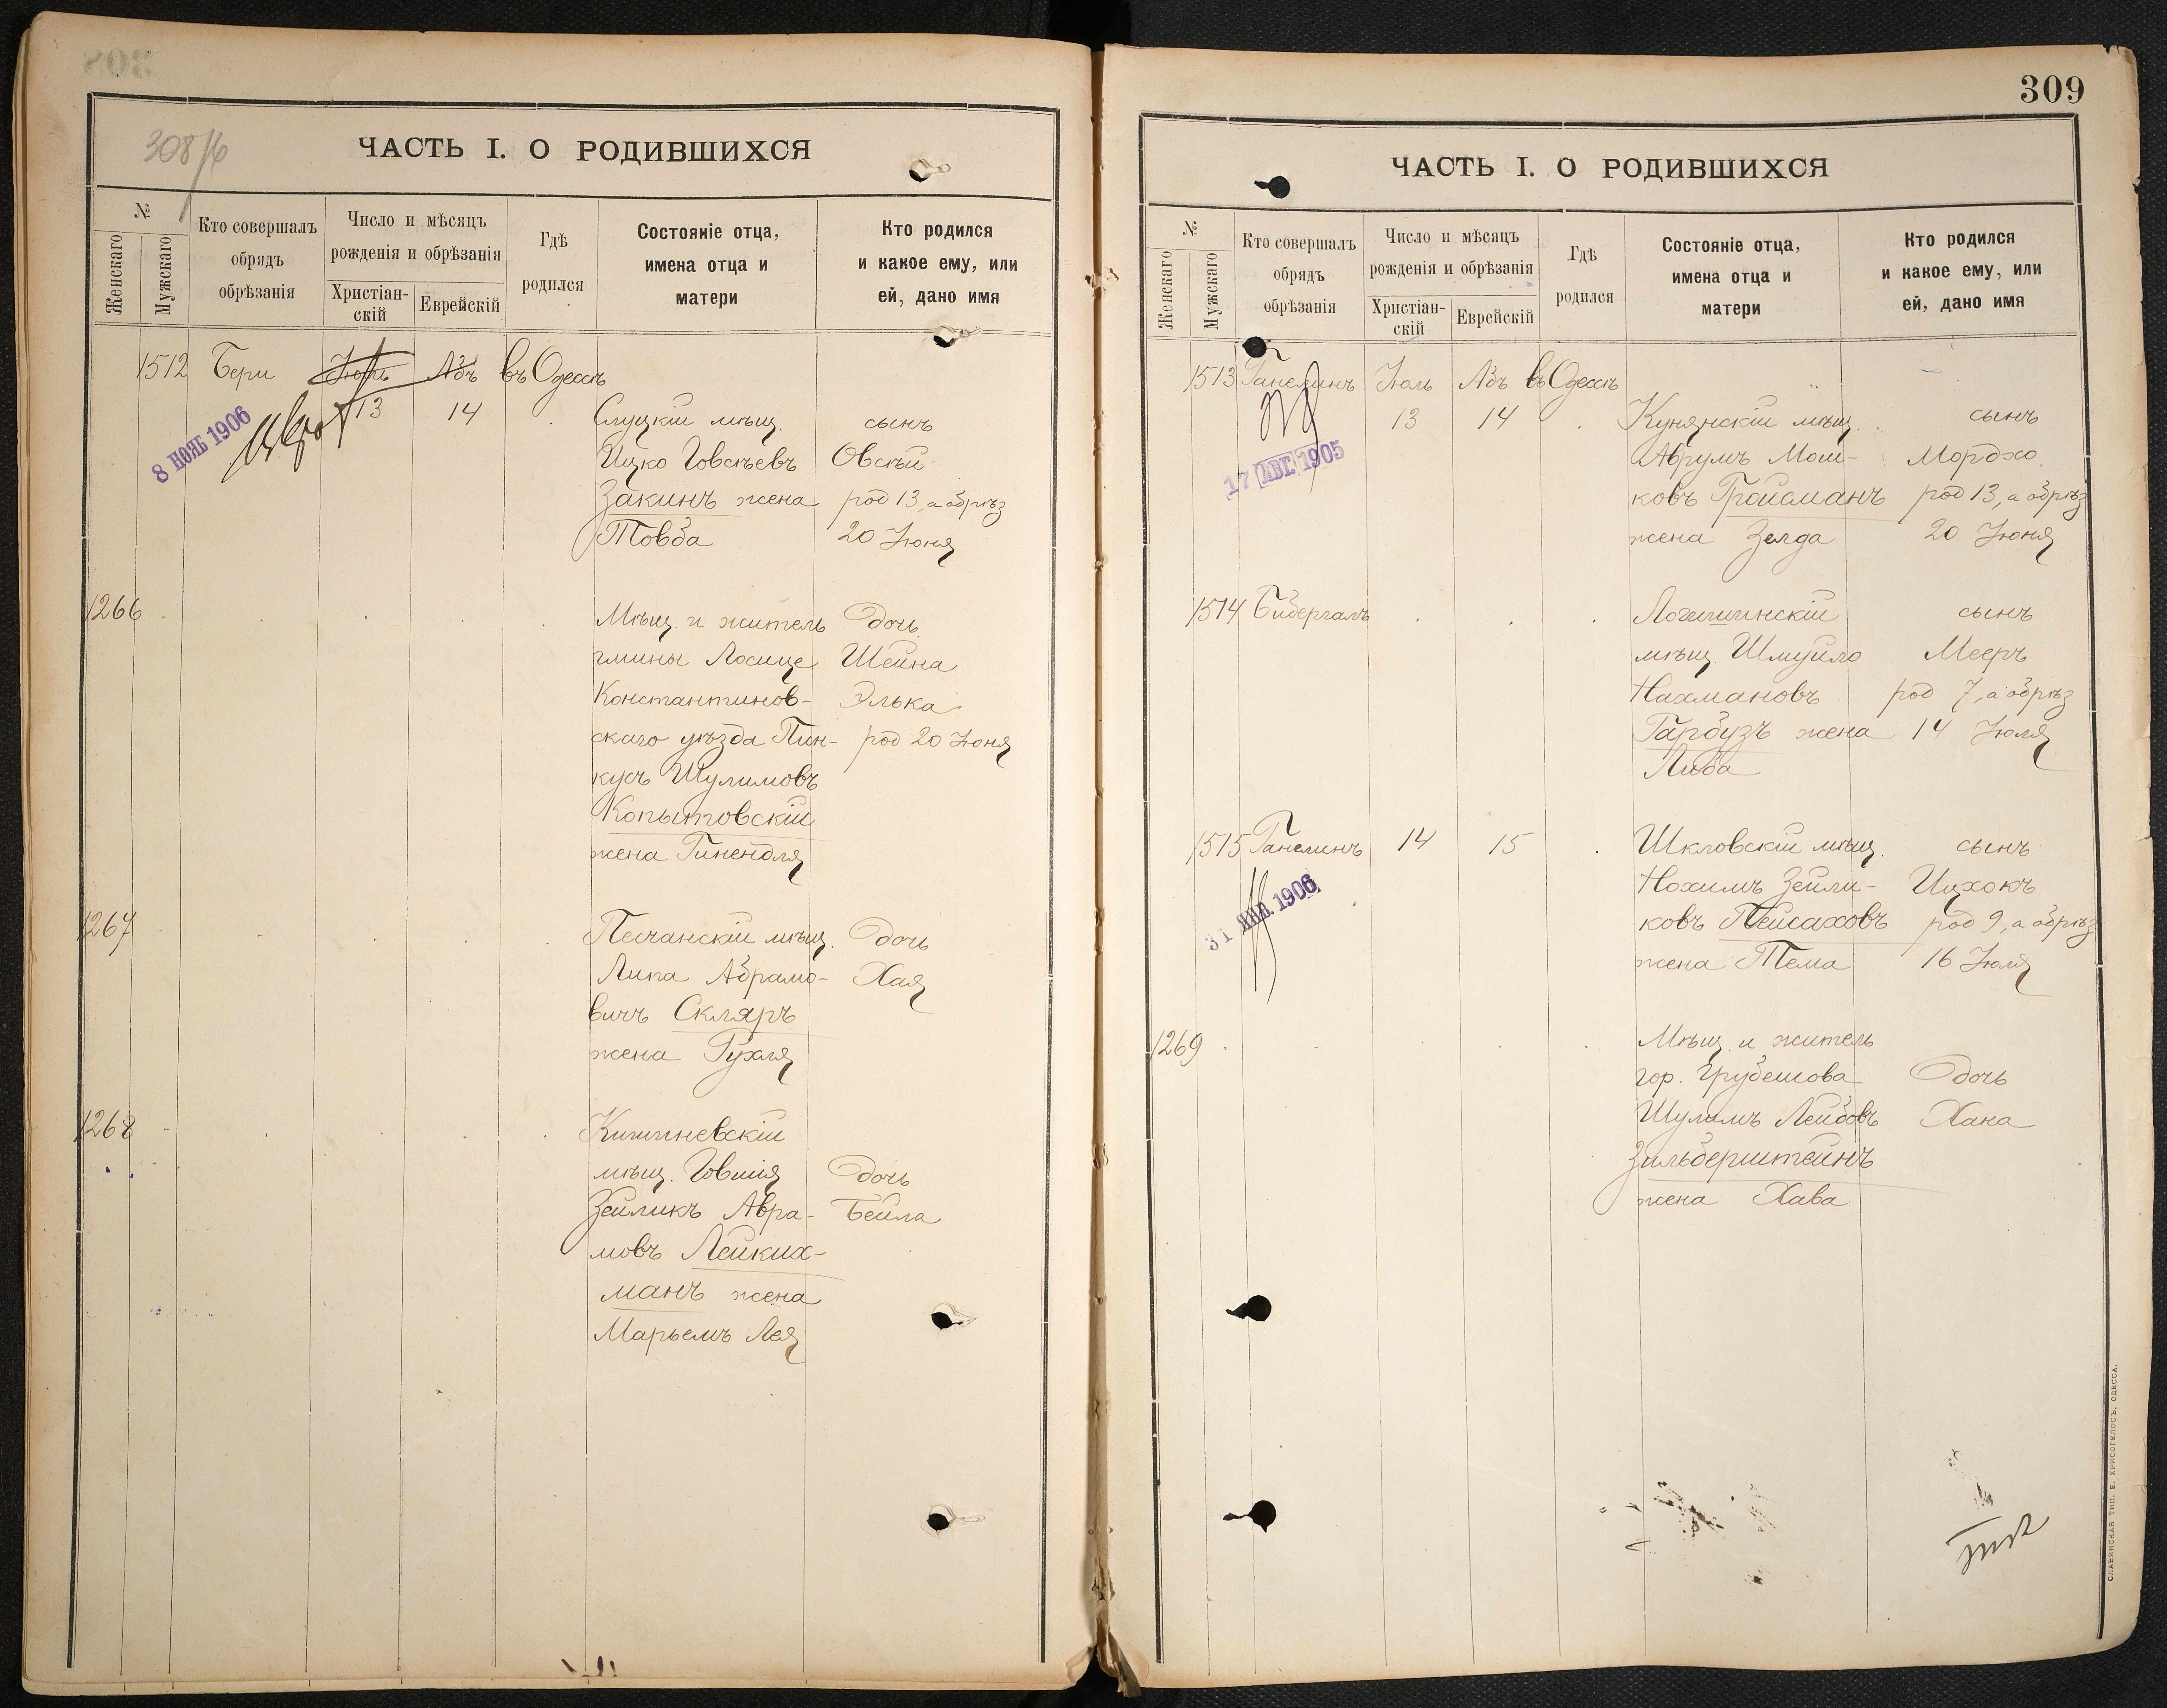 308/б
ЧАСТЬ I. О РОДИВШИХСЯ
№
Женскаго
Мужскаго
Кто совершалъ
обрядъ
обрѣзанія
Число и мѣсяцъ
рожденія и обрѣзанія
Христіан-
скій
Еврейскій
Гдѣ
родился
Состояніе отца,
имена отца и
матери
Кто родился
и какое ему, или
ей, дано имя
1512 Бери Абъ въ Одессѣ
13 14 Слуцкій мѣщ. сынъ
8 НОЯБ 1906
Ицко Іовсѣевъ Овсѣй
Закинъ жена род 13, а обрѣз
Товба 20 Іюня
1266 Мѣщ. и житель дочь
гмины Лосице Шейна
Константинов- Элька
скаго уѣзда Пин- род 20 Іюня
кусъ Шулимовъ
Копытовскій
жена Гинендля
1267 Песчанскій мѣщ. дочь
Липа Абрамо- Хая
вичъ Скляръ
жена Рухля
1268 Кишиневскій
мѣщ. Іовшія дочь
Зейликъ Авра- Бейла
мовъ Лейких-
манъ жена
Марьемъ Лея
309
ЧАСТЬ I. О РОДИВШИХСЯ
№
Женскаго
Мужскаго
Кто совершалъ
обрядъ
обрѣзанія
Число и мѣсяцъ
рожденія и обрѣзанія
Христіан-
скій
Еврейскій
Гдѣ
родился
Состояніе отца,
имена отца и
матери
Кто родился
и какое ему, или
ей, дано имя
1513 Ганелинъ Іюль Абъ въ Одессѣ
13 14 Кунянскій мѣщ. сынъ
17 АВГ. 1905
Аврумъ Мош- Мордхо
ковъ Гройсманъ род 13, а обрѣз
жена Зелда 20 Іюня
1514 Бибергалъ Логишинскій сынъ
мѣщ Шмуйло Мееръ
Нахмановъ род 7, а обрѣз
Гарбузъ жена 14 Іюля
Либа
1515 Ганелинъ 14 15 Шкловскій мѣщ. сынъ
31 ЯНВ. 1906
Нохимъ Зейли- Ицхокъ
ковъ Пейсаховъ род 9, а обрѣз
жена Тема 16 Іюля
1269 Мѣщ. и житель
гор. Грубешова дочь
Шулимъ Лейбовъ Хана
Зильберштейнъ
жена Хава
СЛАВЯНСКАЯ ТИП. Е. ХРИСОГЕЛОСЪ, ОДЕССА.